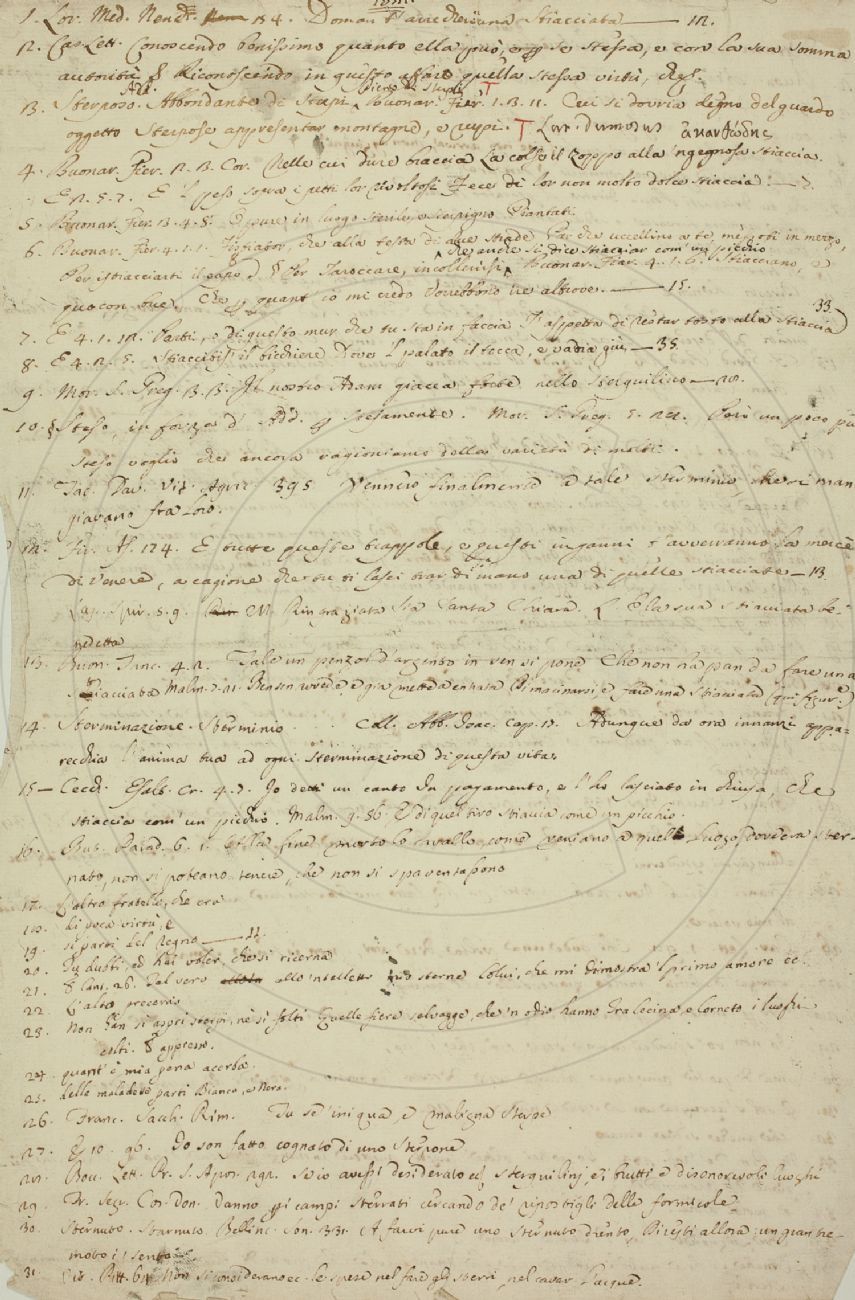 1. Lor. Med. Nenc. 84. Doman t'arrecherò una stiacciata — 12.
2. Cas. Lett. Conoscendo benissimo quanto ella può, e so stessa, e con la sua somma
autorità § Riconoscendo in questo quella stessa virtù, che
3. Sterposo. Add. Abbondante di sterpi. Pieno di sterpi. T Buonar. Fier. 1. 3. 11. Ceci si dovria degno del guardo
oggetto sterpose appresentar montagne, e rupi. T Lat. dumosus ἀκανθώδης
4. Buonar. Fier. 2. 3. Cor. Nelle cui dure braccia La colse il zoppo alla 'ngegnosa stiaccia.
E 2. 5. 7. E 'l peso sopra i petti lor Fece di lor non molto dolce stiaccia. — 7.
5. Buonar. Fier. 3. 4. 8. O pure in luogo sterile, e sterpigno Piantati.
6. Buonar. Fier. 4. 1. 1. che alla testa di due strade Per che uccellino a te, in mezzo,
Per istiacciarti il capo § Per Taroccare, incollorirsi, che anche si dice stiacciar com' un picchio Buonar. Fier. 4. 1. 6. Stiacciano, e
quant' io mi credo Dovebbono ire altrove. — 15.
7. E 4. 1. 12. Parti, e di questo mur, che tu sta in faccia T'aspetta di restar tosto alla stiaccia 33
8. E 4. 2. 5. il bicchiere Dove 'l palato il tocca, e vada giù, — 35.
9. Mor. S. Greg. 3. 3. Il nostro Adam giacea forte nello sterquilino — 28.
10. § Steso, in forza d' Add. stesamente. Mor. S. Greg. 5. 22. Però un poco più
steso voglio che ancora ragioniamo della varietà di molti.
11. Tac. Dav. Vit. Agric. 395 Vennero finalmente a tale sterminio, che si man
giavano fra loro.
12. Fir. As. 174. E tutte queste trappole, e questi inganni t'avverranno la mercè
di Venere, a cagione che tu ti lasci trar di mano una di quelle stiacciate — 13
Lag. Spir. 5. 9. M. Ringraziata sia Santa Chiara. L. E la sua stiacciata be-
nedetta
13. Buon. Tanc. 4. 2. Tale un penzol d'argento in sen si pone Che non ha pan da fare una
stiacciata Malm. 7. 21. Bensen vede, e già mette a entrata Di macinarsi, e farne una stiacciata (qui figur.)
14. Sterminazione. Sterminio. Coll. Abb. Isac. Cap. 13. Adunque da ora innanzi appa-
recchia l'anima tua ad ogni sterminazione di questa vita.
15 — Cecch. Esalt. Cr. 4. 7. Io detti un canto In pagamento, e l'ho lasciato in chiusa, Che
stiaccia com' un picchio. Malm. 9. 56. E di quel tiro stiaccia come un picchio.
16. But. Parad. 6. 1. Alla fine morto lo cavallo, come veniano a quello luogo dov' era ster-
nato, non si poteano tenere, che non si spaventassono
17. L'altro fratello, che era
18. di poca virtù, e
19. si partì del Regno — 11.
20. Tu dubbi, ed hai voler, che si ricerna
21. § Cant. 26. Tal vero allo 'ntelletto mio sterne Colui, che mi dimostra 'l primo amore ec.
22. L'alto preconio
23. Non han sì aspri sterpi, nè sì folti Quelle fiere selvagge, che 'n odio hanno Tra Cecina, e Corneto i luoghi
colti. § appresso.
24. quant' è mia pena acerba.
25. delle maladette parti Bianca, e Nera.
26. Franc. Sacch. Rim. Tu se' iniqua, e maligna sterpe
27. E 10. 96. Io son fatto cognato di uno sterpone
28. Bocc. Lett. Pr. S. Apos. 292. Se io avessi desiderato gli sterquilinj e i brutti e disonorevoli luoghi
29. Fr. Segr. Cos. don. Danno pei campi sterrati cercando de' ripostigli delle formicole
30. Sternuto. Starnuto. Bellinc. Son. 331. A farvi pure uno sternuto drento, Diresti allora: un gran tre-
moto i' sento
31. Non si considerano ec. le spese nel fare gli sterri, nel cavar l'acque.